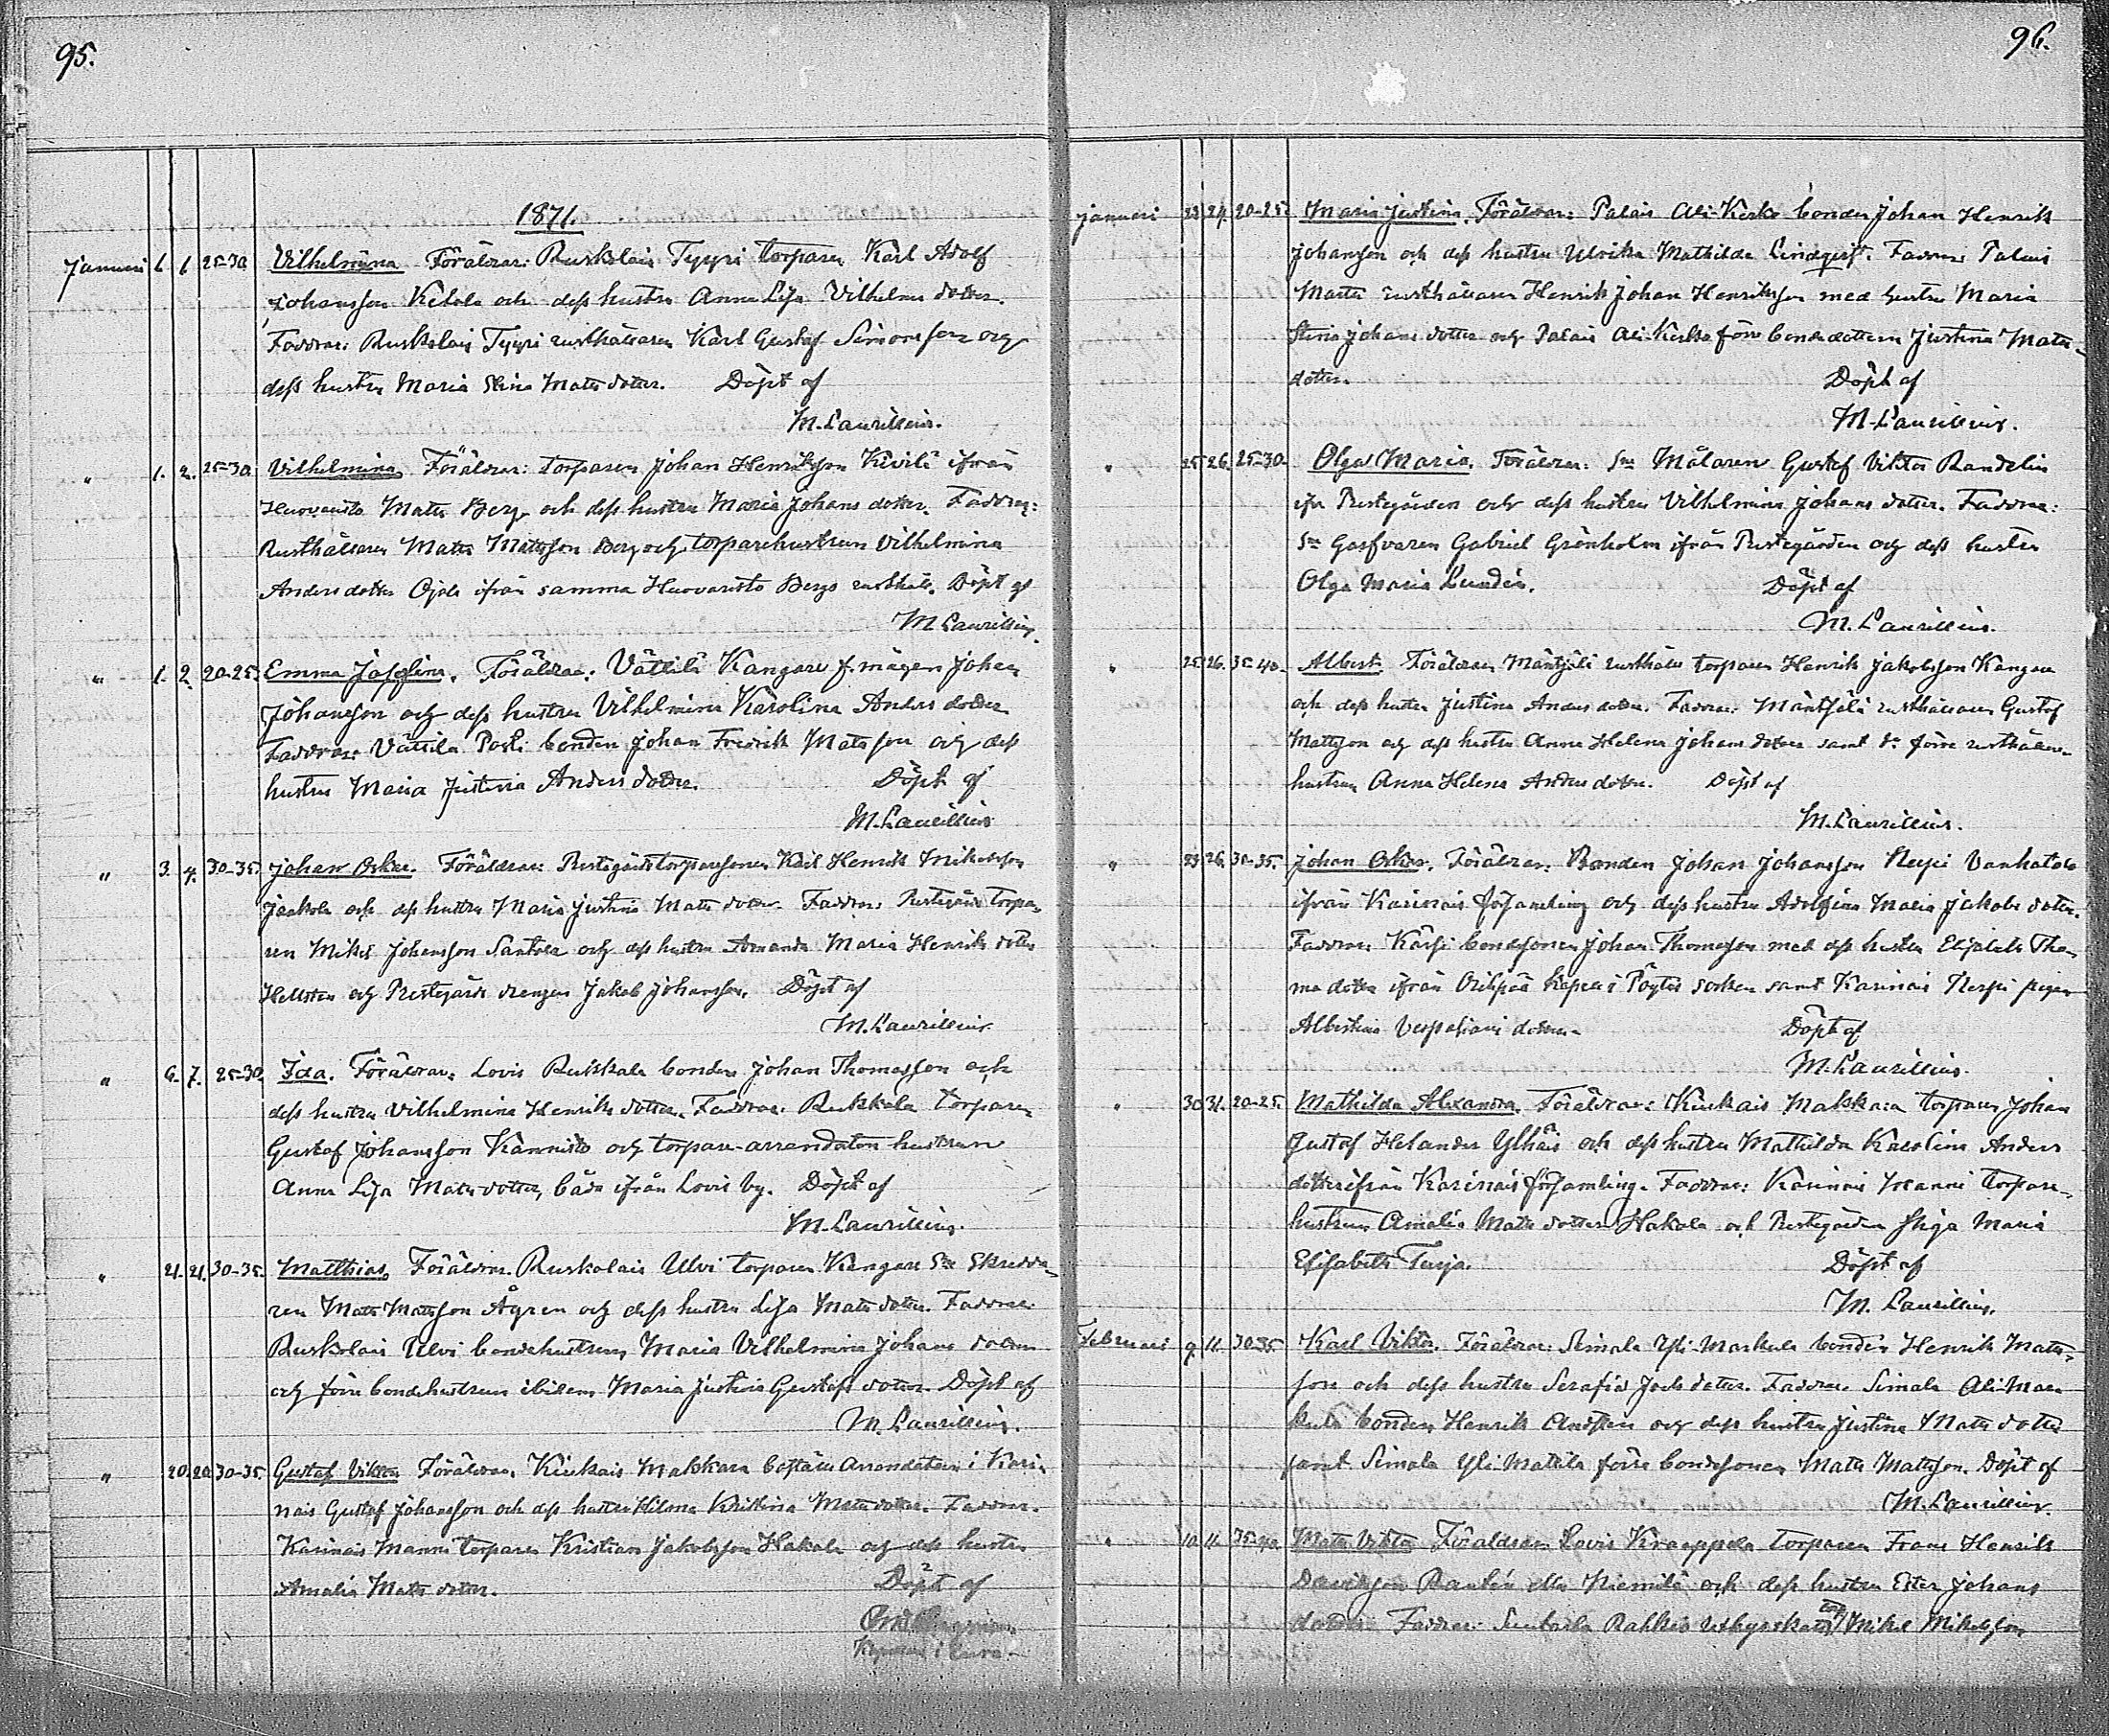 95.
1871.
Januari 1. 1. 25-30. Vilhelmina Föräldrar: Ruskolais Tyyri torparen Karl Adolf
Johansson Ketola och dess hustru Anna Lisa Vilhelms dotter.
Faddrar: Ruskolais Tyyri rusthållaren Karl Gustaf Simonsson och
dess hustru Maria Stina Mats dotter. Döpt af
M. Laurillius.
" 1. 2. 25-30. Vilhelmina, Föräldrar: torparen Johan Henriksson Kivilä ifrån
Huovaristo Matts Berg och dess hustru Maria Johans dotter. Faddrar:
Rusthållaren Matts Mattsson Berg och torparehustrun Vilhelmina
Anders dotter Ojala ifrån samma Huovaristo Bergs rusthåll. Döpt af
M. Laurillius.
" 1. 2. 20-25. Emma Josefina. Föräldrar: Vättilä Kangare f. mågen Johan
Johansson och dess hustru Vilhelmina Karolina Anders dotter
Faddrar: Vättilä Posti bonden Johan Fredrik Matsson och dess
hustru Maria Justina Anders dotter. Döpt af
M. Laurillius
" 3. 4. 30-35. Johan Oskar. Föräldrar: Prestgårds torparesonen Karl Henrik Mikelsson
Jaakola och dess hustru Maria Justina Mats dotter. Faddrar: Prestgårds torpa-
ren Mikel Johansson Santala och dess hustru Amanda Maria Henriks dotter
Hellsten och Prestgårds drengen Jakob Johansson. Döpt af
M. Laurillius
" 6. 7. 25-30. Ida. Föräldrar: Lovis Rukkala bonden Johan Thomasson och
dess hustru Vilhelmina Henriks dotter. Faddrar: Rukkala torparen
Gustaf Johansson Kännistö och torpare-arrendatorn hustrun
Anna Lisa Mats dotter, båda ifrån Lovis by. Döpt af
M. Laurillius.
" 21. 21. 30-35. Matthias, Föräldrar. Ruskolais Ulvi torparen Kangare Sn Skredda-
ren Matts Mattsson Ågren och dess hustru Lisa Mats dotter. Faddrar
Ruskolais Ulvi bondehustrun Maria Vilhelmina Johans dotter
och förre bondehustrun ibidem Maria Justina Gustafs dotter. Döpt af
M. Laurillius.
" 20. 20. 30-35. Gustaf Viktor Föräldrar. Kiukais Makkara arrendatorn i Kari-
nais Gustaf Johansson och dess hustru Hilma Kristina Mats dotter. Faddrar.
Karinais Manni torparen Kristian Jakobsson Hakala och dess hustru
Amalia Mats dotter. Döpt af
96.
Januari 23. 24. 20-25. Maria Justina. Föräldrar: Palais Ali-Kerko bonden Johan Henrik
Johansson och dess hustru Ulrika Mathilda Lindqvist. Faddrar Palais
Matts rusthållaren Henrik Johan Henriksson med hustru Maria
Stina Johans dotter och Palais Ali-Kerko förre bondedottern Justina Mats-
dotter. Döpt af
M. Laurillius.
" 25. 26. 25-30. Olga Maria. Föräldrar: Sn Målaren Gustaf Viktor Randelin
ifrn Prestegården och dess hustru Vilhelmina Johans dotter. Faddrar:
Sn Garfvaren Gabriel Grönholm ifrån Prestegården och dess hustru
Olga Maria Lundén. Döpt af
M. Laurillius.
" 25. 26. 35-40. Albert. Föräldrar Mäntsälä rusthålls torparen Henrik Jakobsson Kangas
och dess hustru Justina Anders dotter. Faddrar: Mäntsälä rusthållaren Gustaf
Mattsson och dess hustru Anna Helena Johans dotter samt dn förre rusthållare-
hustrun Anna Helena Anders dotter. Döpt af
M. Laurillius.
" 23. 26. 30-35. Johan Oskar. Föräldrar: Bonden Johan Johansson Vanhatalo
ifrån Karinais församling och dess hustru Adolfina Maria Jakobs dotter.
Faddrar Kärsi bondesonen Johan Thomasson med dess hustru Elisabeth Tho-
mas dotter ifrån Oripää kapell i Pöytis socken samt Karinais pigan
Albertina dotter. Döpt af
M. Laurillius.
" 30. 31. 20-25. Mathilda Alexandra. Föräldrar: Kiukais Makkara torparen Johan
Gustaf Helander Ylhäis och dess hustru Mathilda Karolina Anders
dotter ifrån Karinais församling. Faddrar: Karinais Manni torpare-
hustrun Amalia Mats dotter Hakala och Prestegården Maria
Elisabeth Terja. Döpt af
M. Laurillius.
Februari 9. 11. 30-35. Karl Viktor. Föräldrar: Simala Yli-Markula bonden Henrik Matts-
son och dess hustru Serafia Joels dotter. Faddrar Simala Ali-Mar-
kula bonden Henrik Andersson och dess hustru Justina Mats dotter
samt Simala Yli-Mattila förre bondesonen Matts Mattsson. Döpt af
M. Laurillius.
" 10. 11. 35-40. Matts Viktor Föräldrar Lovis Kraappala torparen Frans Henrik
Davidsson Rautén eller Niemilä och dess hustru Ester Johans
dotter. Faddrar: Rahkio Mikel Mikelsson